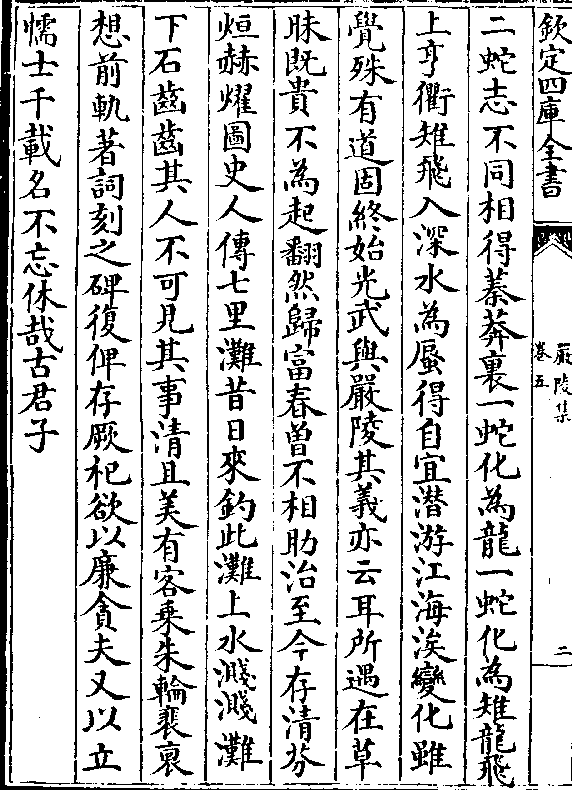 欽定四庫全書
嚴陵集
卷五
二
二蛇志不同相得蓁莽裏一蛇化為龍一蛇化為雉龍飛
上亨衢雉飛入深水為蜃得自宜潛游江海涘變化雖
覺殊有道固終始光武與嚴陵其義亦云耳所遇在草
昧既貴不為起翻然歸富春曽不相助治至今存清芬
烜赫燿圖史人傳七里灘昔日來釣此灘上水濺濺灘
下石齒齒其人不可見其事清且美有客乗朱輪裴裒
想前軌著詞刻之碑復俾存厥祀欲以廉貪夫又以立
懦士千載名不忘休哉古君子